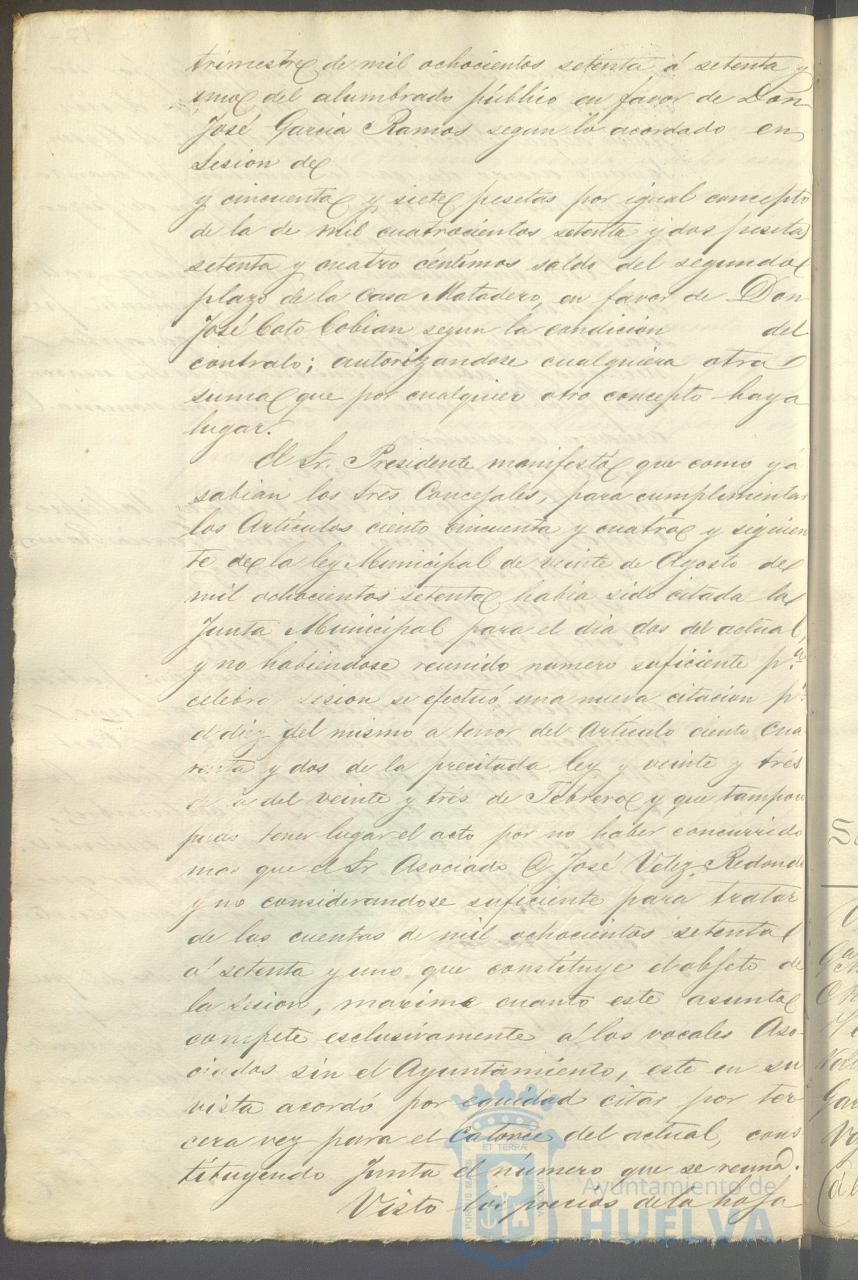 trimestre de mil ochocientos setenta á setenta y
uno del alumbrado público en favor de Don
José Garcia Ramos segun lo acordado en
Sesion de
y cincuenta y siete pesetas por igual concepto
de la de mil cuatrocientos setenta y dos peseta
setenta y cuatro céntimos saldo del segundo
plazo de la Casa Matadero, en favor de Don
José Coto Cobian segun la condición del
contrato; autorizandose cualquiera otra
suma que por cualquier otro concepto haya
lugar.
El Sr. Presidente manifestó que como yá
sabian los Sres Concejales, para cumplimentar
los Artículos ciento cincuenta y cuatro y siguien
te de la ley Municipal de veinte de Agosto de
mil ochocientos setenta habia sido citada la
Junta Municipal para el dia dos del actual,
y no habiendose reunido numero suficiente pª
celebra sesion se efectuó una nueva citacion pª
el diez del mismo a tenor del Artículo ciento cua
renta y dos de la precitada ley y veinte y trés
del veinte y trés de Febrero y que tampoco
pudo tener lugar el acto por no haber concurrido
mas que el Sr Asociado D José Velez Redondo
y no considerandose suficiente para tratar
de las cuentas de mil ochocientos setenta
á setenta y uno que constituye el objeto de
la sesion, maxime cuanto este asunto
compete esclusivamente á los vocales Aso-
ciados sin el Ayuntamiento, este en su
vista acordó por equidad citar por ter
cera vez para el Catorce del actual, cons
tituyendo Junta el número que se reuna.
Visto los precios de la hoja
ET TERRÆ
Ayuntamiento de
HUELVA